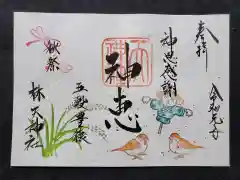 奉拝
神恩感謝
令和元年
神恵
秋祭
五穀豊穣
林天神社